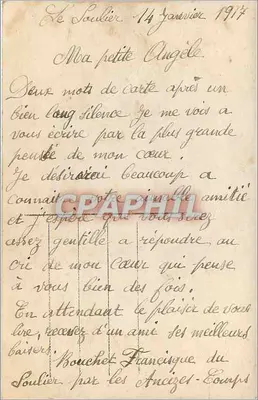 Le Soulier 14 Janvier 1917
Ma petite Angèle
Deux mots de carte après un
bien long silence Je me vois a
vous écrire par la plus grande
pensée de mon cœur.
Je désirerai beaucoup a
connait amitié
et j'espère que vous serez
CPAPHIL
assez gentille a répondre au
cri de mon cœur qui pense
à vous bien des fois.
En attendant le plaisir de vous
lire, recevez d'un ami ses meilleurs
baisers.
Bouchet Francisque du
Soulier par les Ancizes-Comps